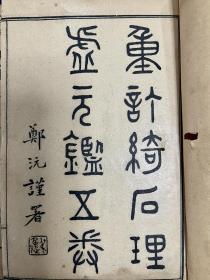 重訂綺石理
虛元鑑五卷
鄭沅謹署